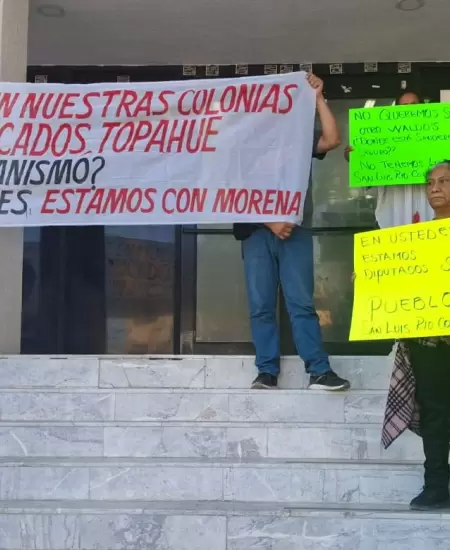 N NUESTRAS COLONIAS
CADOS, TOPAHUE
ANISMO?
ES, ESTAMOS CON MORENA
NO QUEREMOS S
OTRO WALDOS
¿DONDE ESTA
NO TENEMOS
SAN LUIS RIO CO
EN USTEDE
ESTAMOS
DIPUTADOS S
PUEBLO
SAN LUIS RIO CO